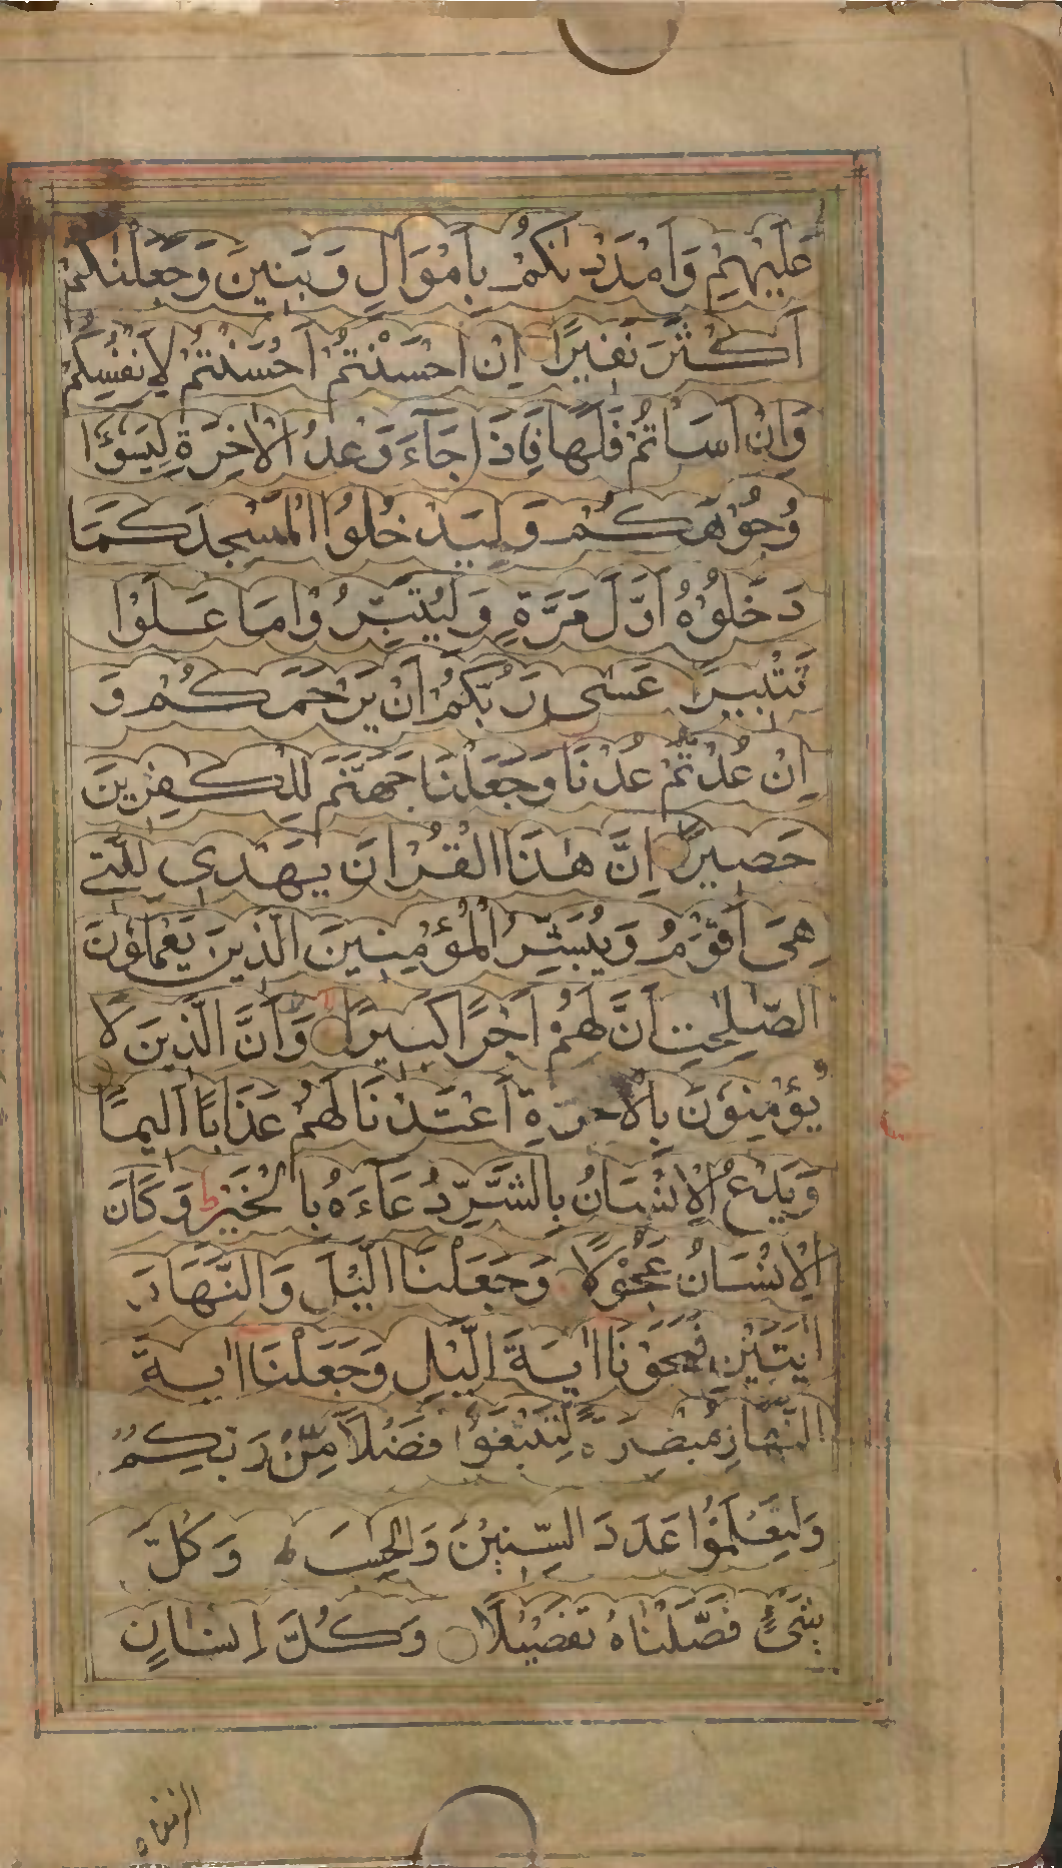 عَلَيْهِمْ وَاَمْدَدْنٰكُمْ بِاَمْوَالٍ وَّبَنِينَ وَجَعَلْنٰكُمْ
اَكْثَرَ نَفِيرًا اِنْ اَحْسَنْتُمْ اَحْسَنْتُمْ لِاَنْفُسِكُمْ
وَاِنْ اَسَاْتُمْ فَلَهَا فَاِذَا جَآءَ وَعْدُ الْاٰخِرَةِ لِيَسُوٓءٗا
وُجُوْهَكُمْ وَلِيَدْخُلُوا الْمَسْجِدَ كَمَا
دَخَلُوْهُ اَوَّلَ مَرَّةٍ وَلِيُتَبِّرُوْا مَا عَلَوْا
تَتْبِيرًا عَسٰى رَبُّكُمْ اَنْ يَرْحَمَكُمْ وَ
اِنْ عُدْتُّمْ عُدْنَا وَجَعَلْنَا جَهَنَّمَ لِلْكٰفِرِينَ
حَصِيرًا اِنَّ هٰذَا الْقُرْاٰنَ يَهْدِى لِلَّتِى
هِىَ اَقْوَمُ وَيُبَشِّرُ الْمُؤْمِنِينَ الَّذِينَ يَعْمَلُوْنَ
الصّٰلِحٰتِ اَنَّ لَهُمْ اَجْرًا كَبِيرًا وَاَنَّ الَّذِينَ لَا
يُؤْمِنُوْنَ بِالْاٰخِرَةِ اَعْتَدْنَا لَهُمْ عَذَابًا اَلِيمًا
وَيَدْعُ الْاِنْسَانُ بِالشَّرِّ دُعَآءَهُ بِالْخَيْرِ ط وَكَانَ
الْاِنْسَانُ عَجُوْلًا وَجَعَلْنَا الَّيْلَ وَالنَّهَارَ
اٰيَتَيْنِ فَمَحَوْنَا اٰيَةَ الَّيْلِ وَجَعَلْنَا اٰيَةَ
النَّهَارِ مُبْصِرَةً لِّتَبْتَغُوْا فَضْلًا مِّنْ رَبِّكُمْ
وَلِتَعْلَمُوْا عَدَدَ السِّنِيْنَ وَالْحِسَا ط وَكُلَّ
شَىْءٍ فَصَّلْنَاهُ تَفْصِيْلًا وَكُلَّ اِنْسَانٍ
الزمناه